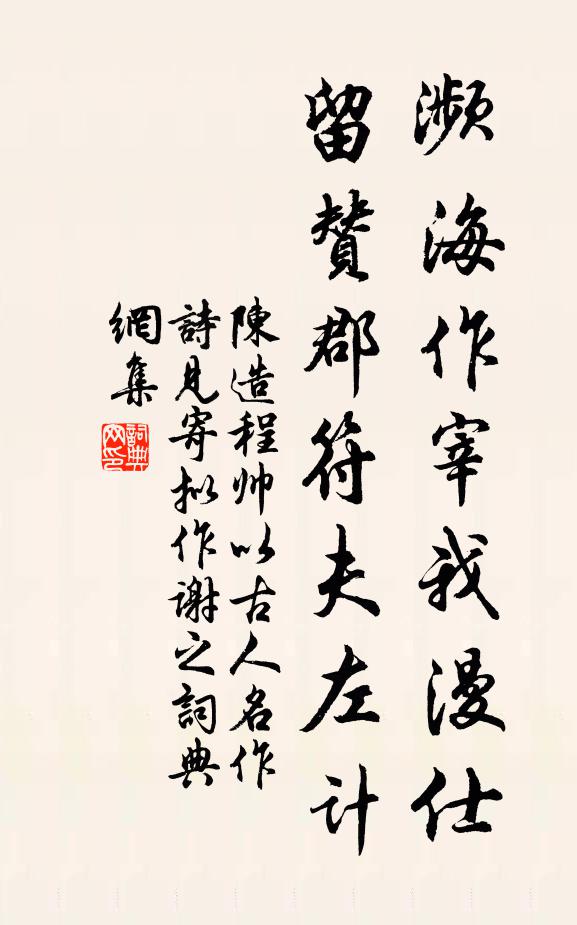 瀕海作宰我漫仕
留贊郡符夫左計
陳造程帅以古人名作
詩見寄拟作谢之詞典
網集
詞典
网印